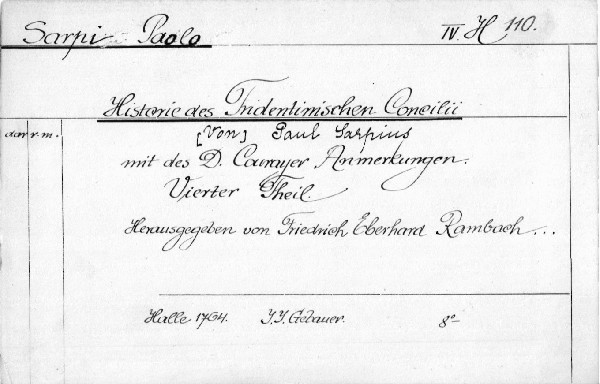 Sarpi Paolo IV. H 110.
Historie des Tridentinischen Concilii
dar. r. m. [Von] Paul Sarpius
mit des D. Courayer Anmerkungen.
Vierter Theil.
Herausgegeben von Friedrich Eberhard Rambach ...
Halle 1764. J.J. Gebauer. 8°